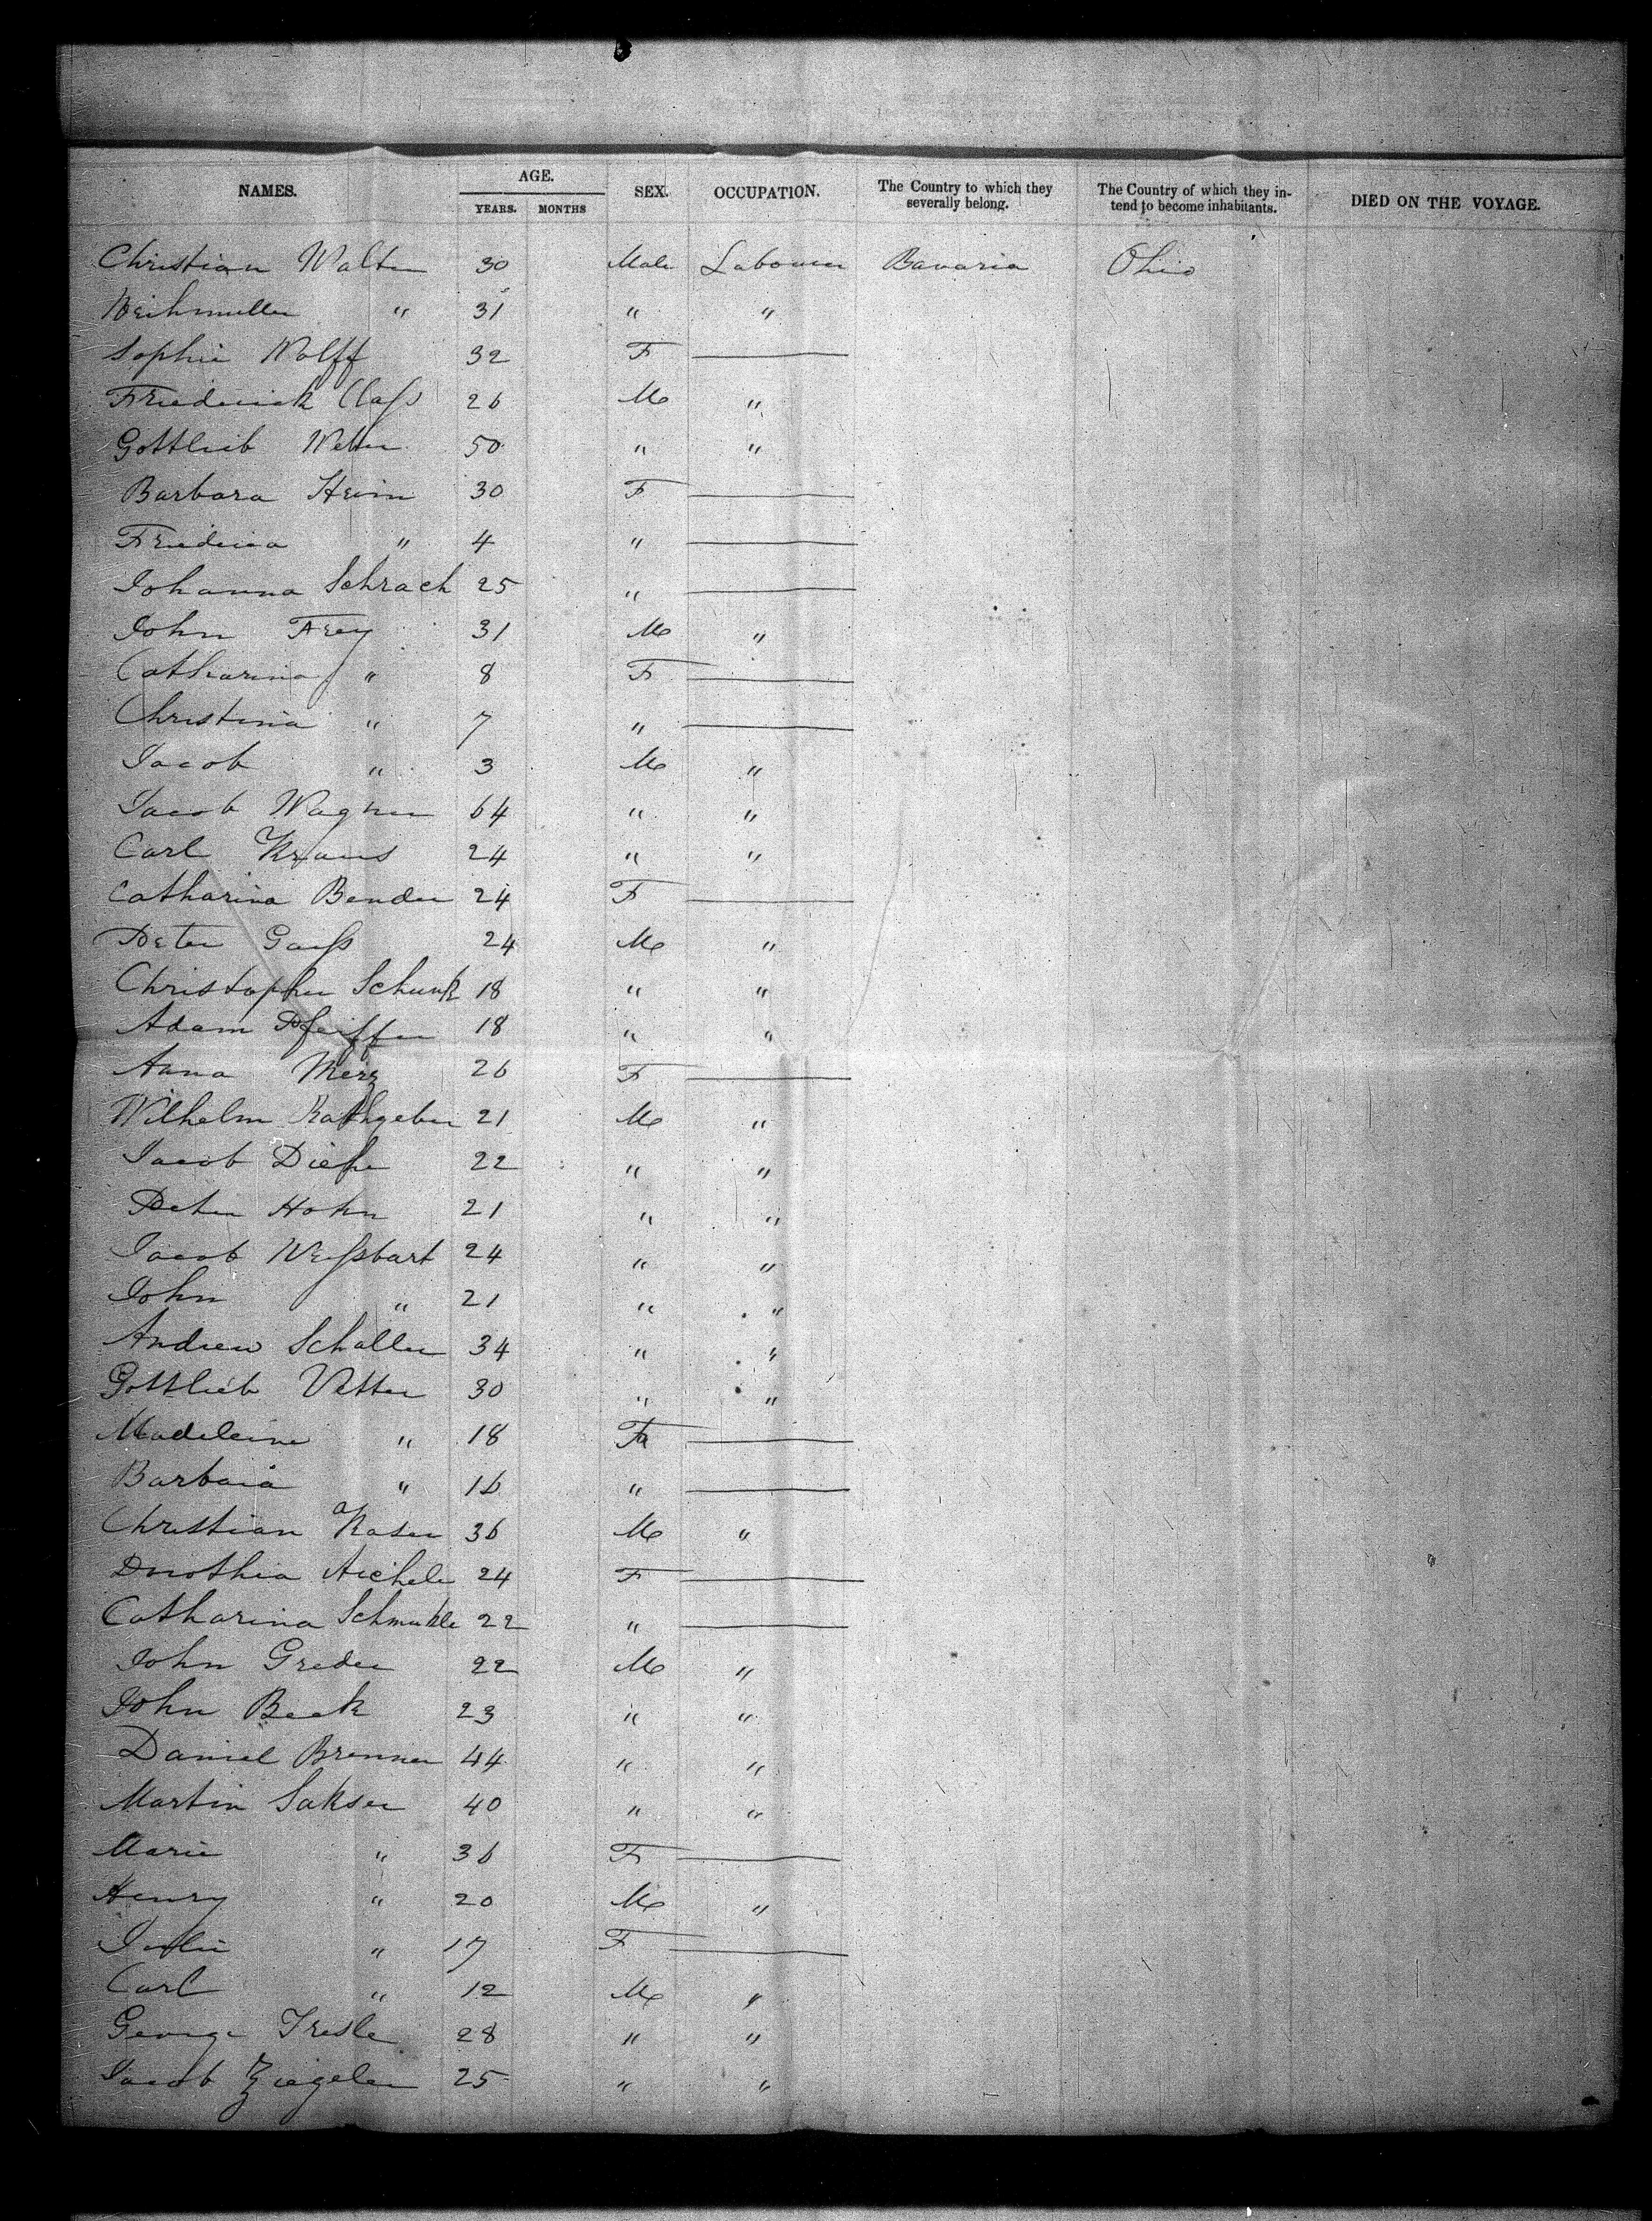 NAMES. AGE. SEX. OCCUPATION. The Country to which they severally belong. The Country of which they intend to become inhabitants. DIED ON THE VOYAGE.
YEARS. MONTHS
Christian Walter 30 Male Labourer Bavaria Ohio
Weihmuller " 31 " "
Sophie Wolff 32 F
Friederick Claſs 26 M "
Gottlieb Weber 50 " "
Barbara Heim 30 F
Friederica " 4 "
Johanna Schrach 25 "
John Frey 31 M "
Catharina " 8 F
Christina " 7 "
Jacob " 3 M "
Jacob Wagner 64 " "
Carl Kraus 24 " "
Catharina Bender 24 F
Peter Gauſs 24 M "
Christopher Schunk 18 " "
Adam Pfeiffer 18 " "
Anna Merz 26 F
Wilhelm Rathgeber 21 M "
Jacob 22 " "
Peter Hohn 21 " "
Jacob Weiſsbart 24 " "
John " 21 " "
Andrew Schaller 34 " "
Gottlieb Vetter 30 " "
Madeleine " 18 F
Barbara " 16 "
Christian Kaser 36 M "
Dorothia Aichele 24 F
Catharina Schmukle 22 "
John Greder 22 M "
John Beck 23 " "
Daniel Brenner 44 " "
Martin Sakser 40 " "
Marie " 36 F
Henry " 20 M "
Julie " 17 F
Carl " 12 M "
George 28 " "
Jacob Ziegeler 25 " "